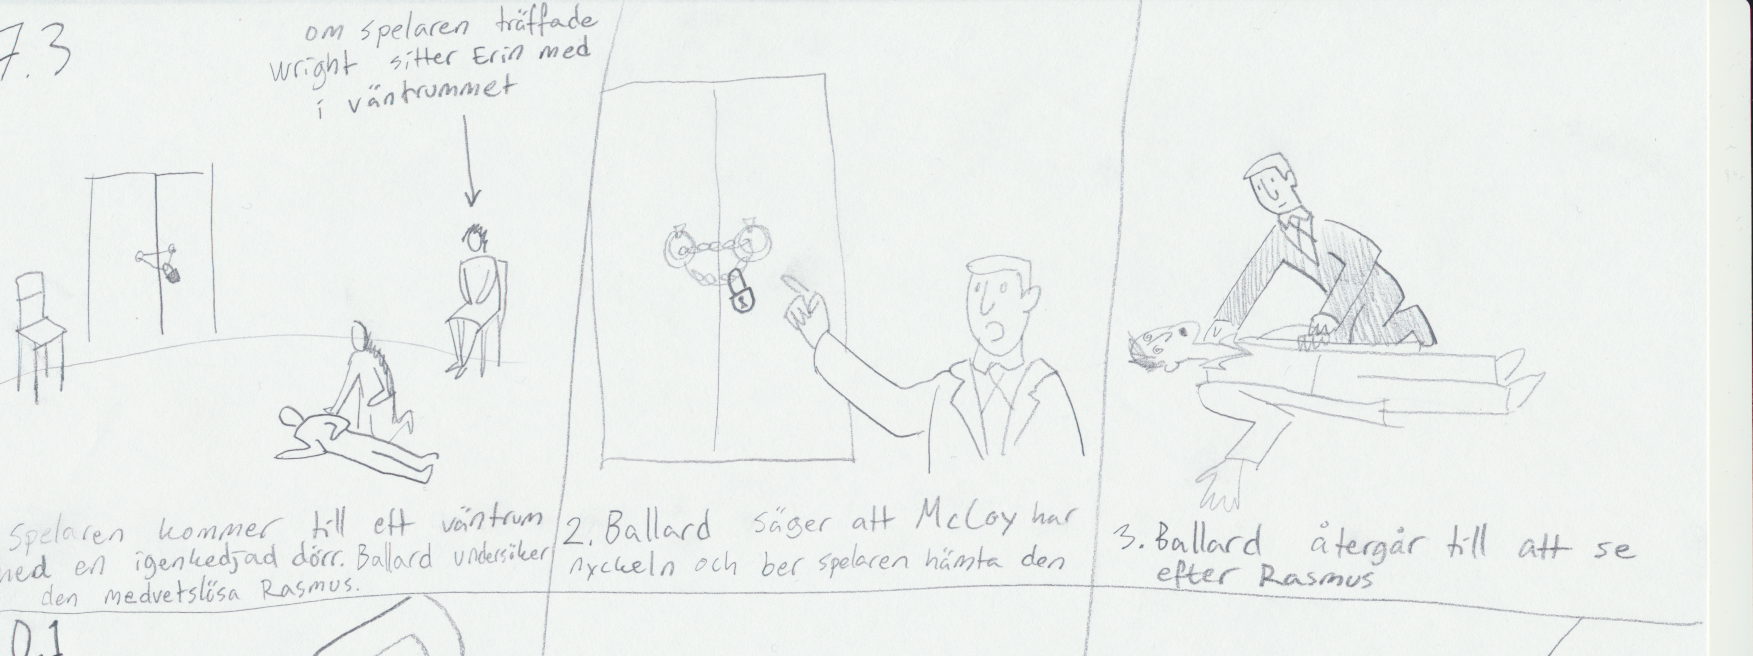 7.3
om spelaren träffade
Wright sitter Erin med
i väntrummet
spelaren kommer till ett väntrum
med en igenkedjad dörr. Ballard undersöker
den medvetslösa Rasmus.
2. Ballard säger att McCoy har
nyckeln och ber spelaren hämta den
3. Ballard återgår till att se
efter Rasmus
0.1